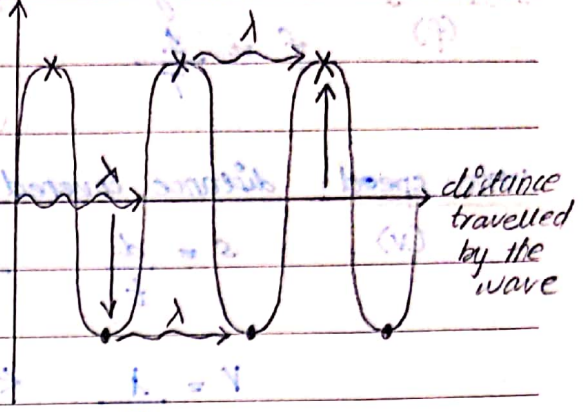 λ
λ
distance
travelled
by the
wave
λ